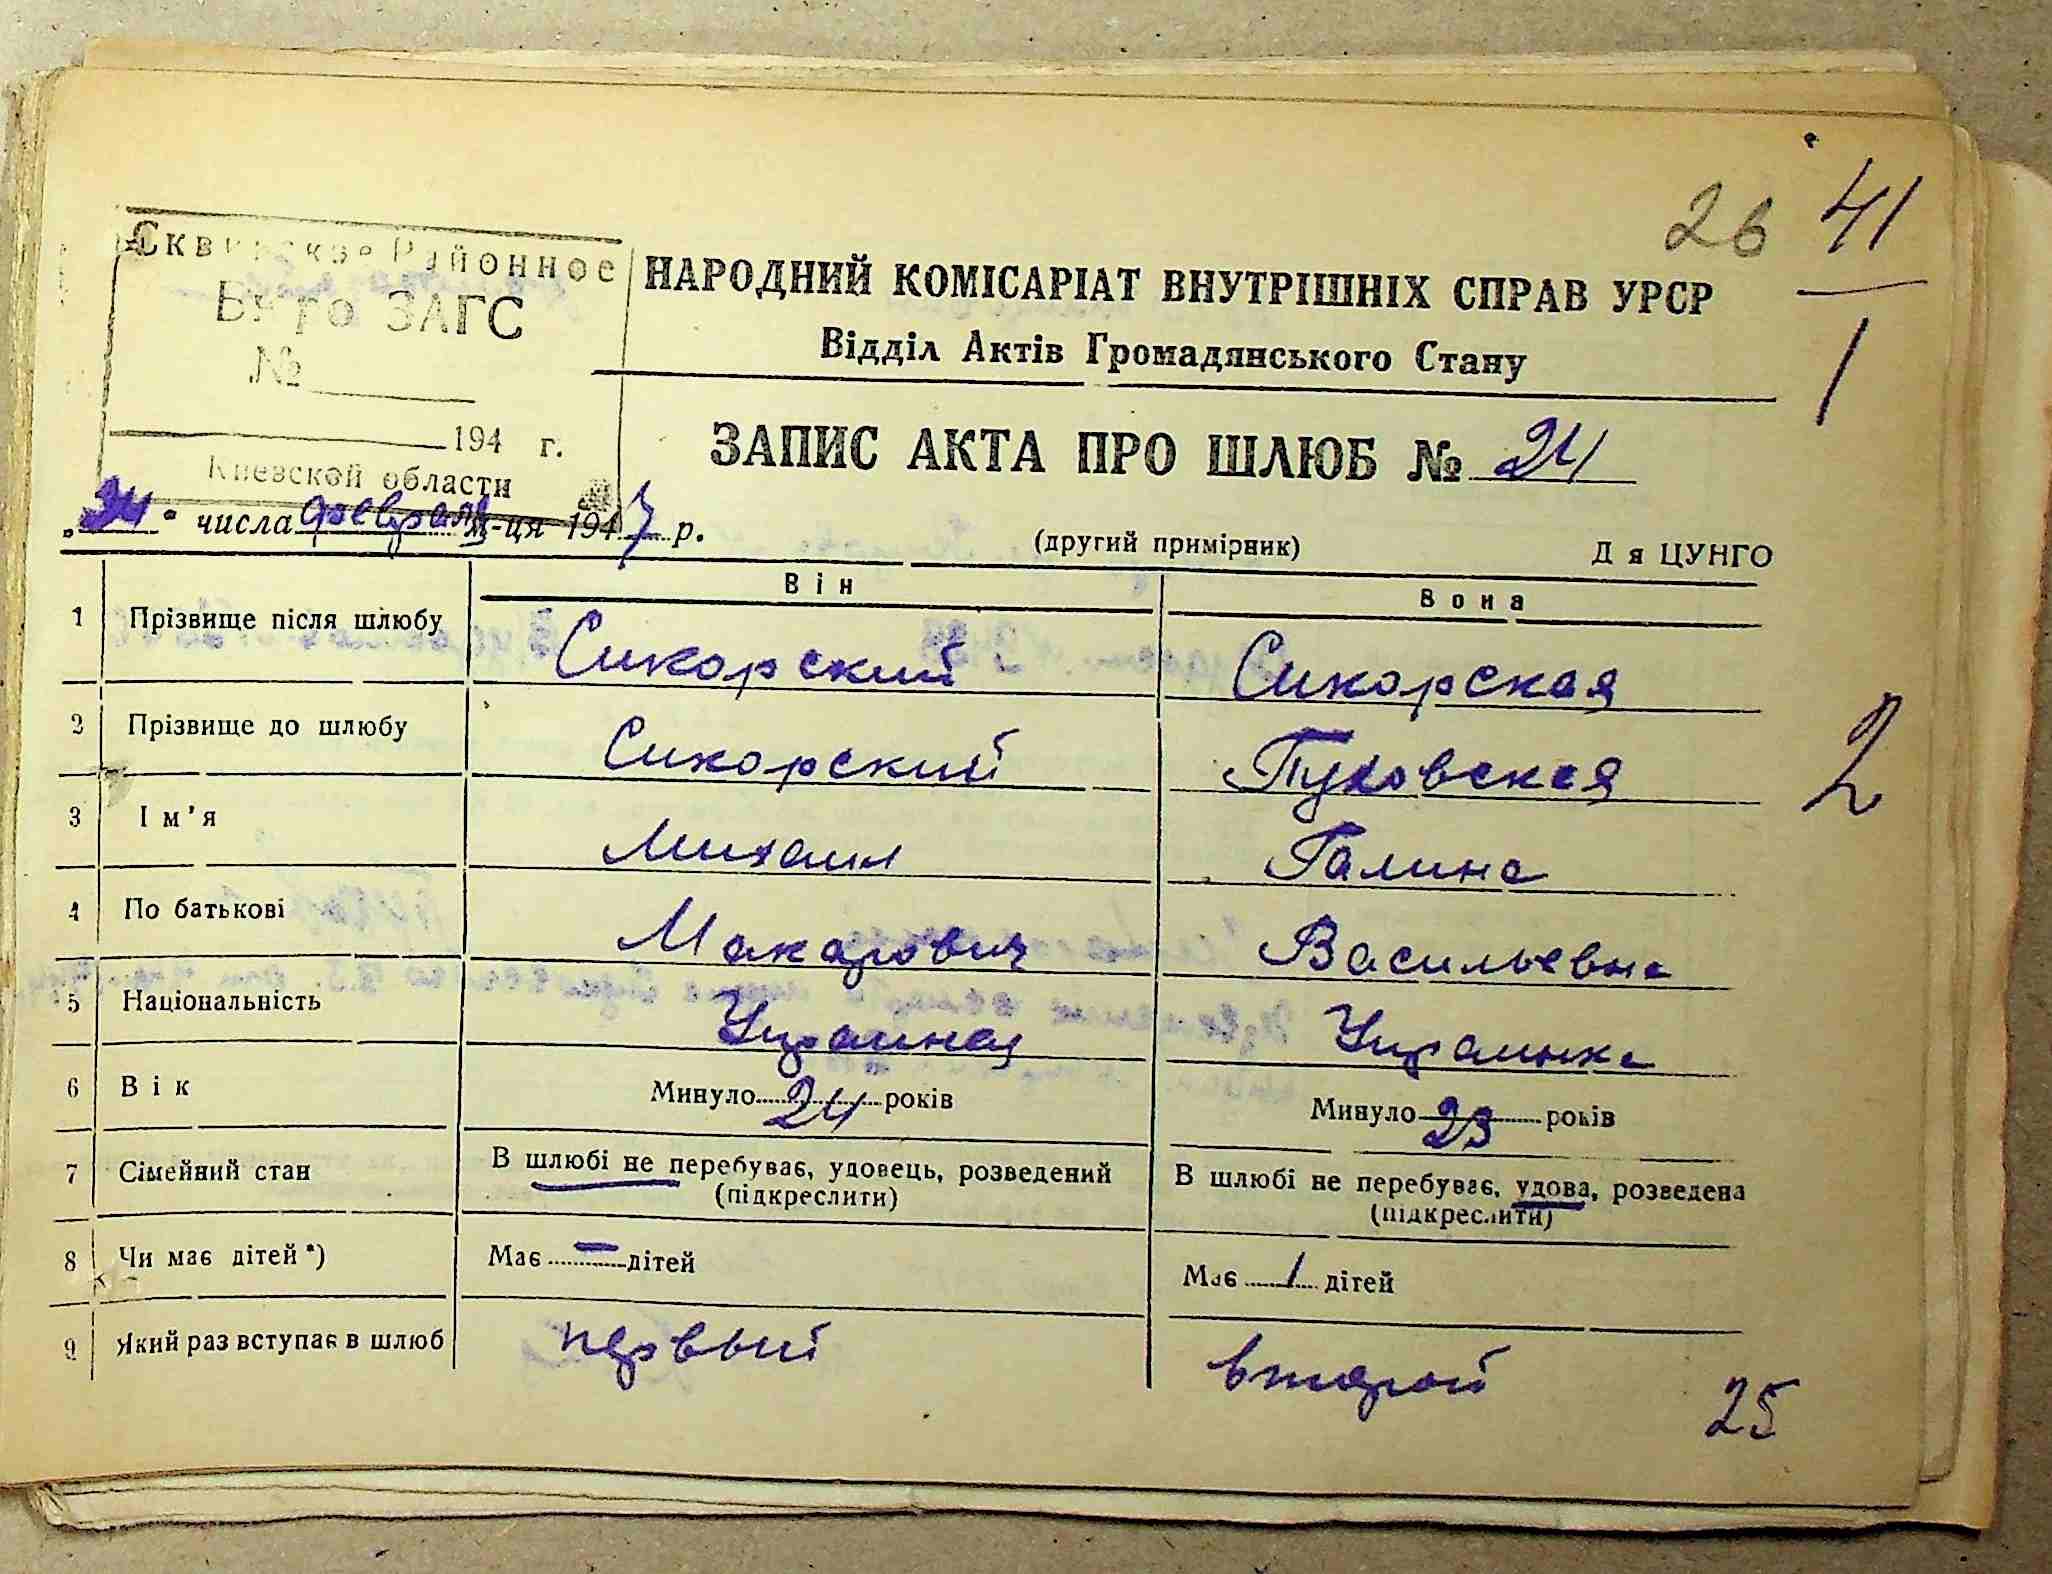 26 41
1
Сквирское Районное
Бюро ЗАГС
№
194 г.
Киевской области
НАРОДНИЙ КОМІСАРІАТ ВНУТРІШНІХ СПРАВ УРСР
Відділ Актів Громадянського Стану
ЗАПИС АКТА ПРО ШЛЮБ № 24
„24" числа февраля м-ця 1947 р.
(другий примірник) Д я ЦУНГО
Він Вона
1 Прізвище після шлюбу Сикорский Сикорская
2 Прізвище до шлюбу Сикорский Пуховская
2
3 Ім'я Михаил Галина
4 По батькові Макарович Васильевна
5 Національність Украинец Украинка
6 Вік Минуло 24 років Минуло 23 років
7 Сімейний стан В шлюбі не перебуває, удовець, розведений В шлюбі не перебуває, удова, розведена
(підкреслити) (підкреслити)
8 Чи має дітей*) Має – дітей Має 1 дітей
9 Який раз вступає в шлюб первый второй
25